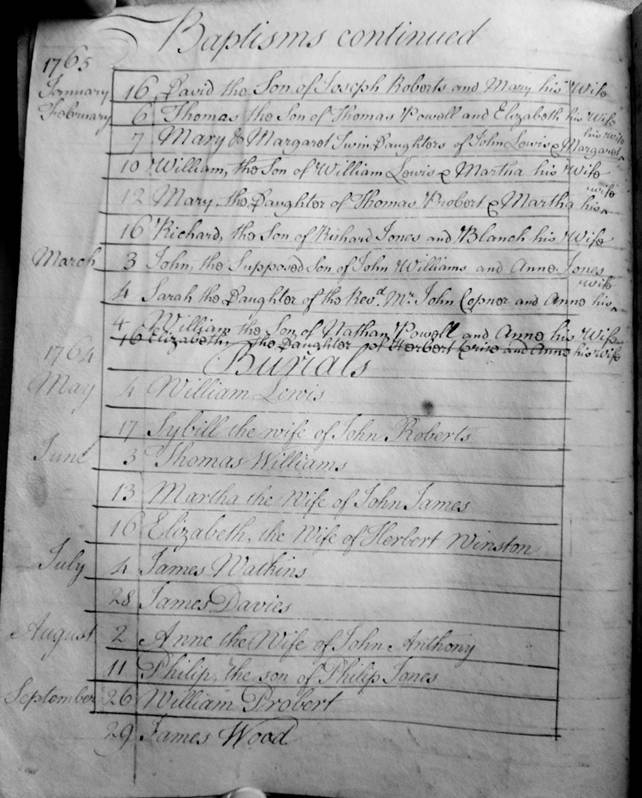 Baptisms continued
1765
January 16 David the Son of Joseph Roberts and Mary his Wife
February 6 Thomas the Son of Thomas Powell and Elizabeth his Wife
7 Mary & Margaret Twin Daughters of John Lewis & Margaret his wife
10 William, the Son of William Lewis & Martha his Wife
12 Mary, the Daughter of Thomas Probert & Martha his wife
16 Richard, the Son of Richard Jones and Blanch his Wife
March 3 John, the Supposed Son of John Williams and Anne Jones
4 Sarah the Daughter of the Revd. Mr. John and Anne his wife
4 William the Son of Nathan Powell and Anne his Wife
16 Elizabeth, the Daughter of Herbert and Anne his Wife
Burials
1764
May 4 William Lewis
17 Sybill the wife of John Roberts
June 3 Thomas Williams
13 Martha the Wife of John James
16 Elizabeth, the Wife of Herbert Winston
July 4 James Watkins
28 James Davies
August 2 Anne the Wife of John Anthony
11 Philip, the son of Philip Jones
September 26 William Probert
29 James Wood